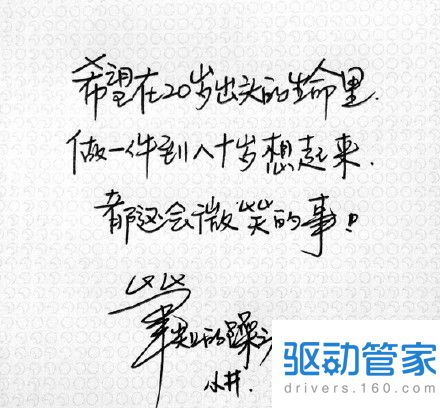 希望在20岁出头的生命里.
做一件到八十岁想起来.
都还会微笑的事!
的躁动
小井.
驱动管家
drivers.160.com